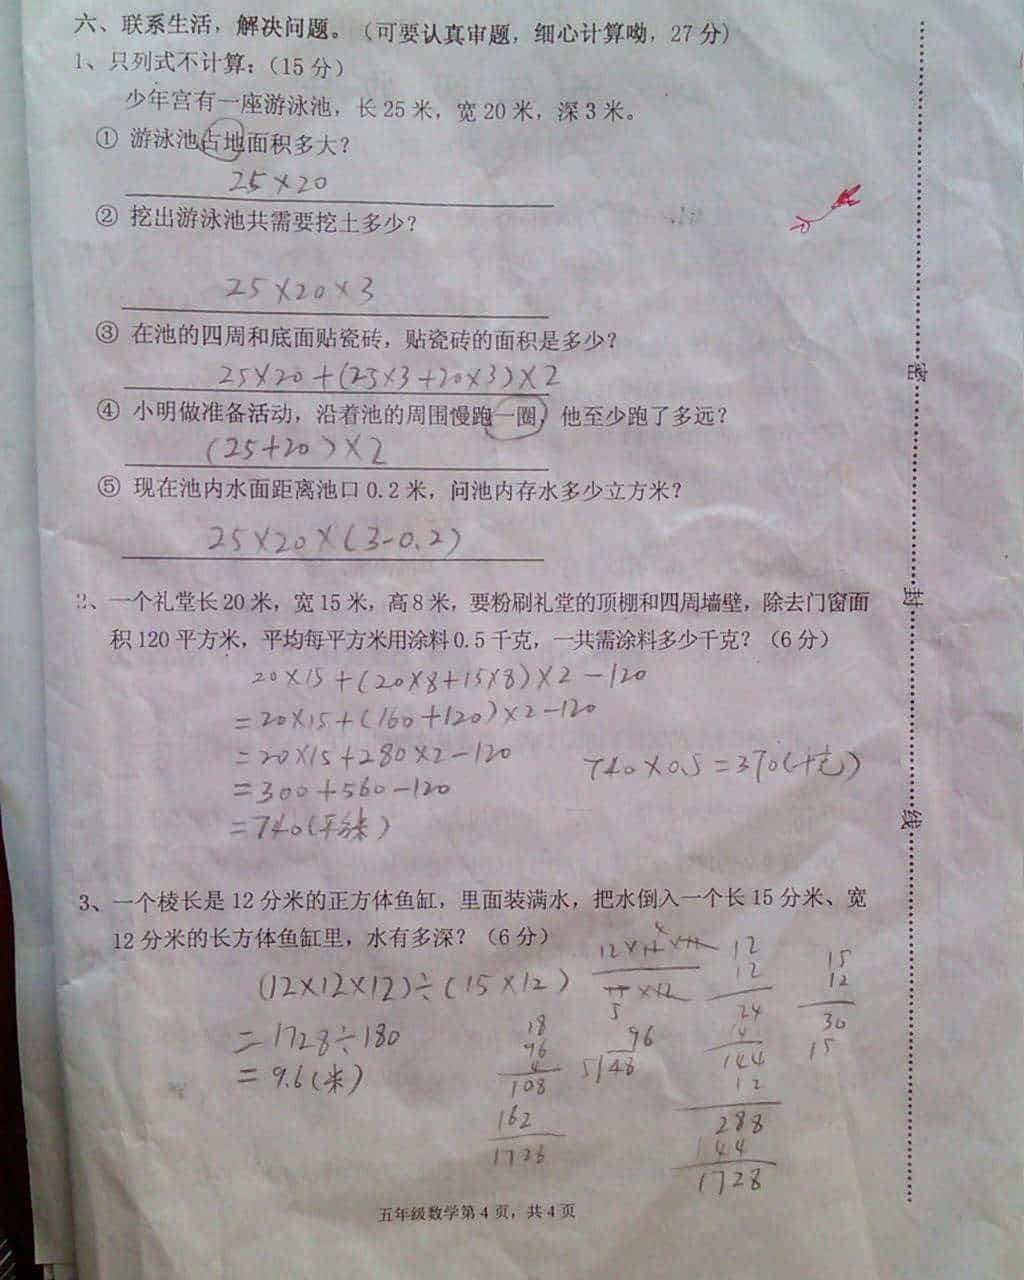 六、联系生活，解决问题。（可要认真审题，细心计算呦，27分）
1、只列式不计算：（15分）
少年宫有一座游泳池，长25米，宽20米，深3米。
① 游泳池占地面积多大？
25×20
② 挖出游泳池共需要挖土多少？
25×20×3
③ 在池的四周和底面贴瓷砖，贴瓷砖的面积是多少？
25×20+(25×3+20×3)×2
④ 小明做准备活动，沿着池的周围慢跑一圈，他至少跑了多远？
(25+20)×2
⑤ 现在池内水面距离池口0.2米，问池内存水多少立方米？
25×20×(3-0.2)
2、一个礼堂长20米，宽15米，高8米，要粉刷礼堂的顶棚和四周墙壁，除去门窗面
积120平方米，平均每平方米用涂料0.5千克，一共需涂料多少千克？（6分）
20×15+(20×8+15×8)×2-120
=20×15+(160+120)×2-120
=20×15+280×2-120
=300+560-120
=740(平方米)
740×0.5=370(千克)
3、一个棱长是12分米的正方体鱼缸，里面装满水，把水倒入一个长15分米、宽
12分米的长方体鱼缸里，水有多深？（6分）
(12×12×12)÷(15×12)
=1728÷180
=9.6(米)
12×12×12
15×12
5
18
96
4
108
162
1726
96
5 48
12
12
24
144
12
288
144
1728
15
12
30
15
五年级数学第4页，共4页
密
封
线